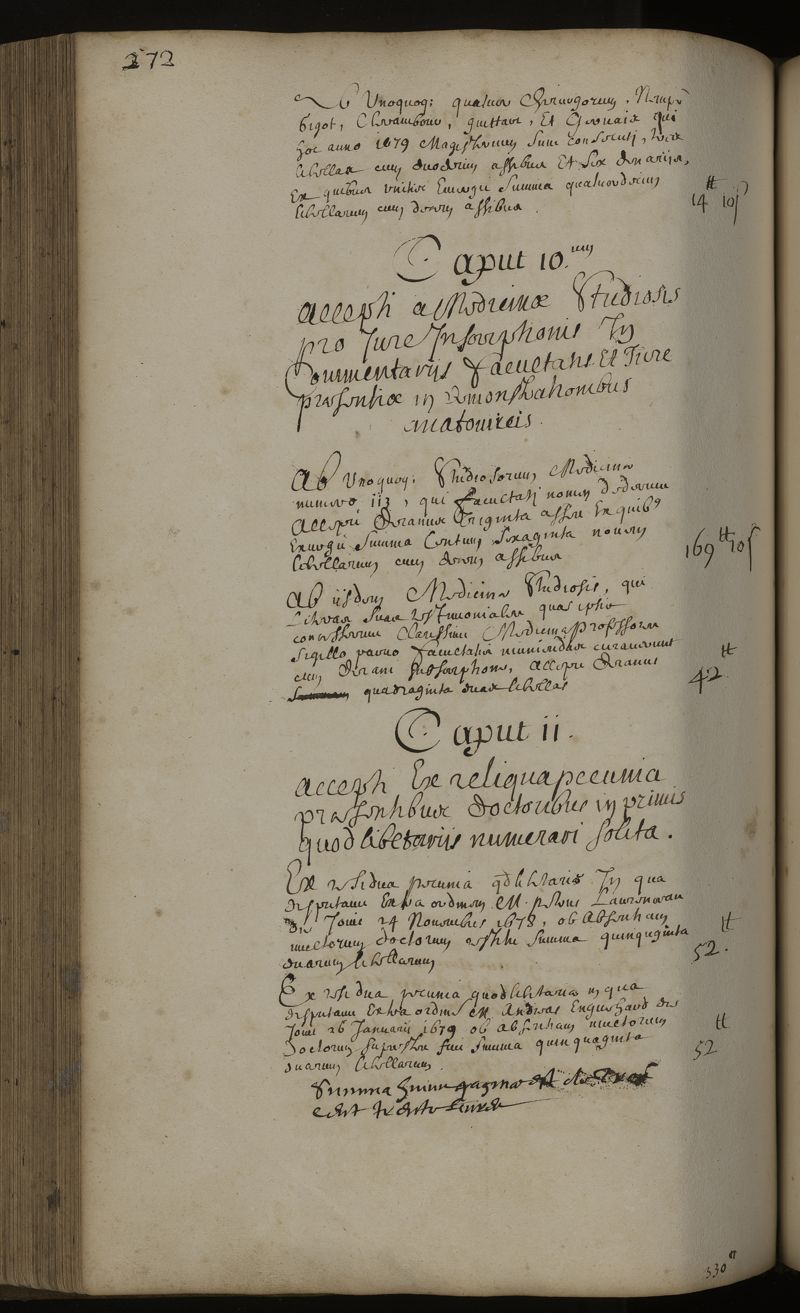 272
Ab Unoquoq; quatuor Chirurgorum, Nempe
bigot, Chrambour, Guittart, Et Gervaix qui
hoc anno 1679 Magisterium sunt consecuti, tres
libellas cum duodecim assibus Et sex denarijs,
Ex quibus unitis Emergit summa quatuordecim
libellarum cum decem assibus.
14 tt 10 s
Caput 10.um
Accepti a Medicinæ Studiosis
pro Jure Inscriptionis In
Commentarijs facultatis Et Jure
præsentiæ in demonstrationibus
anatomicis.
Ab Unoquoq; Studiosorum Medicinæ
numero 113, qui facultati nomen dederunt
Accepit Decanus triginta asses Ex quibus
Emergit summa Centum sexaginta novem
libellarum cum decem assibus
169 tt 10 s
Ab iisdem Medicinæ Studiosis, qui
Litteras suas testimoniales quas ipsis
concesserunt Clarissimi Medicinæ Professores
sigillo parvo facultatis muniendas curaverunt
cum Decani subscriptione, accepit Decanus
quadraginta duas libellas
42 tt
Caput 11.
Accepti Ex reliqua pecunia
præsentibus doctoribus in primis
quodlibetarijs numerari solita.
Ex residua pecunia qdlibetaria In qua
disputavit Extra ordinem M. petrus
die Jovis 24 Novembris 1678, ob absentiam
multorum doctorum restitit summa quinquaginta
duarum libellarum
52. tt
Ex residua pecunia quodlibetaria in qua
disputavit Extra ordinem M. Andreas Enguehard die
Jovis 26 Januarij 1679 ob absentiam multorum
Doctorum superstes fuit summa quinquaginta
duarum libellarum.
52 tt
Summa hujus paginæ est
330 tt